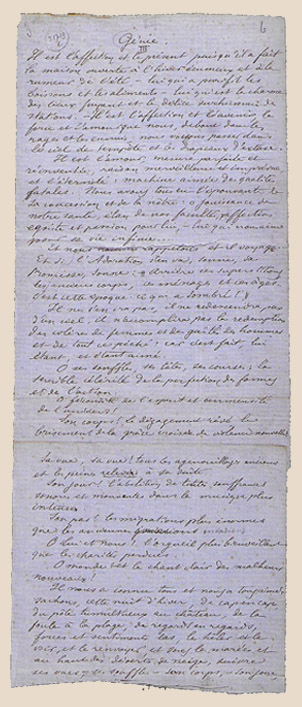 Génie.
Il est l'affection et le présent puisqu'il a fait
la maison ouverte à l'hiver écumeux et à la
rumeur de l'été – lui qui a purifié les
boissons et les aliments – lui qui est le charme
des lieux fuyant et le délice surhumain de
stations. – Il est l'affection et l'avenir, la
force et l'amour que nous, debout dans les
rages et les ennuis, nous voyons passer dans
le ciel de tempête et les drapeaux d'extase.
Il est l'amour, mesure parfaite et
réinventée, raison merveilleuse et imprévue
et l'éternité : machine aimée des qualités
fatales. Nous avons tous eu l'épouvante de
sa concession et de la nôtre : o jouissance de
notre santé, élan de nos facultés, affection
égoïste et passion pour lui, lui qui nous aime
pour sa vie infinie...
Et nous nous le rappelons et il voyage...
Et si l'Adoration s'en va, sonne, sa
Promesse, sonne : « Arrière ces superstitions,
ces anciens corps, ces ménages et ces âges.
C'est cette époque-ci qui a sombré ! »
Il ne s'en ira pas, il ne redescendra pas
d'un ciel, il n'accomplira pas la rédemption
des colères de femmes et des gaîtés des hommes
et de tout ce péché : car c'est fait, lui
étant, et étant aimé.
O ses souffles, ses têtes, ses courses ; la
terrible célérité de la perfection des formes
et de l'action.
O fécondité de l'esprit et immensité
de l'univers !
Son corps ! le dégagement rêvé, le
brisement de la grâce croisée de violence nouvelle !
Sa vue, sa vue ! tous les agenouillages anciens
et les peines relevés à sa suite.
Son jour ! l'abolition de toutes souffrances
sonores et mouvantes dans la musique plus
intense.
Son pas ! les migrations plus énormes
que les anciennes invasions.
O lui et nous ! l'orgueil plus bienveillant
que les charités perdues.
O monde ! et le chant clair des malheurs
nouveaux !
Il nous a connus tous et nous a tous aimés,
sachons, cette nuit d'hiver, de cap en cap,
du pôle tumultueux au château, de la
foule à la plage, de regards en regards,
forces et sentiments las, le héler et le
voir, et le renvoyer, et sous les marées et
au haut des déserts de neige, suivre
ses vues, – ses souffles – son corps, – son jour.